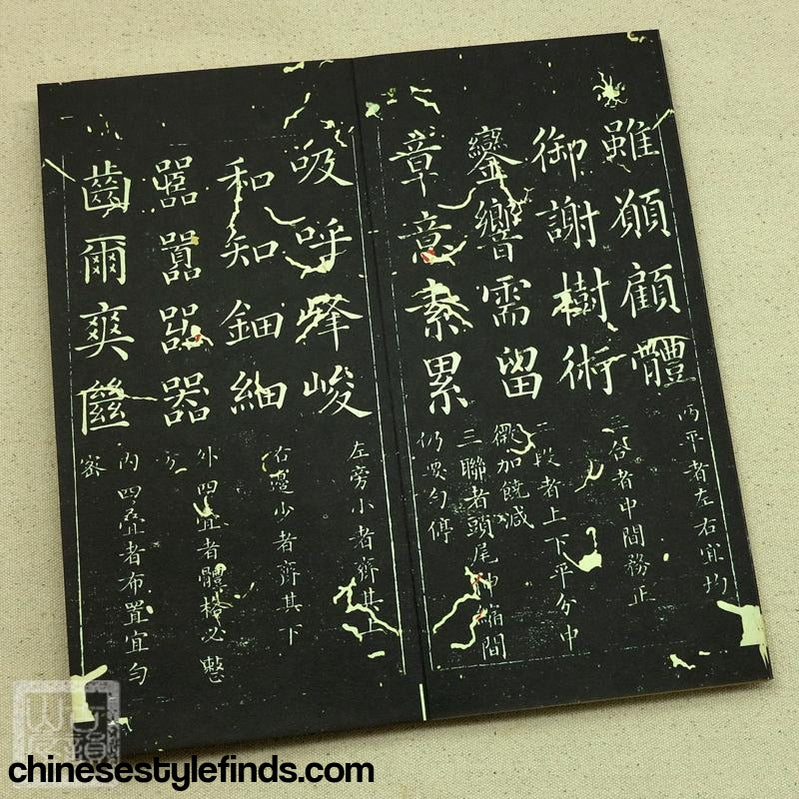 雖願顧體
两平者左右宜均
御謝樹術
三合者中間務正
鑾響需留
二段者上下平分中
微加饒減
章意素累
三聯者頭尾伸縮間
仍要勻停
吸呼峰峻
左旁小者齊其上
和知鈿細
右邊少者齊其下
囂噐器
外四疊者體格必整
方
齒爾爽
內四疊者布置宜勻
密
chinesestylefinds.com